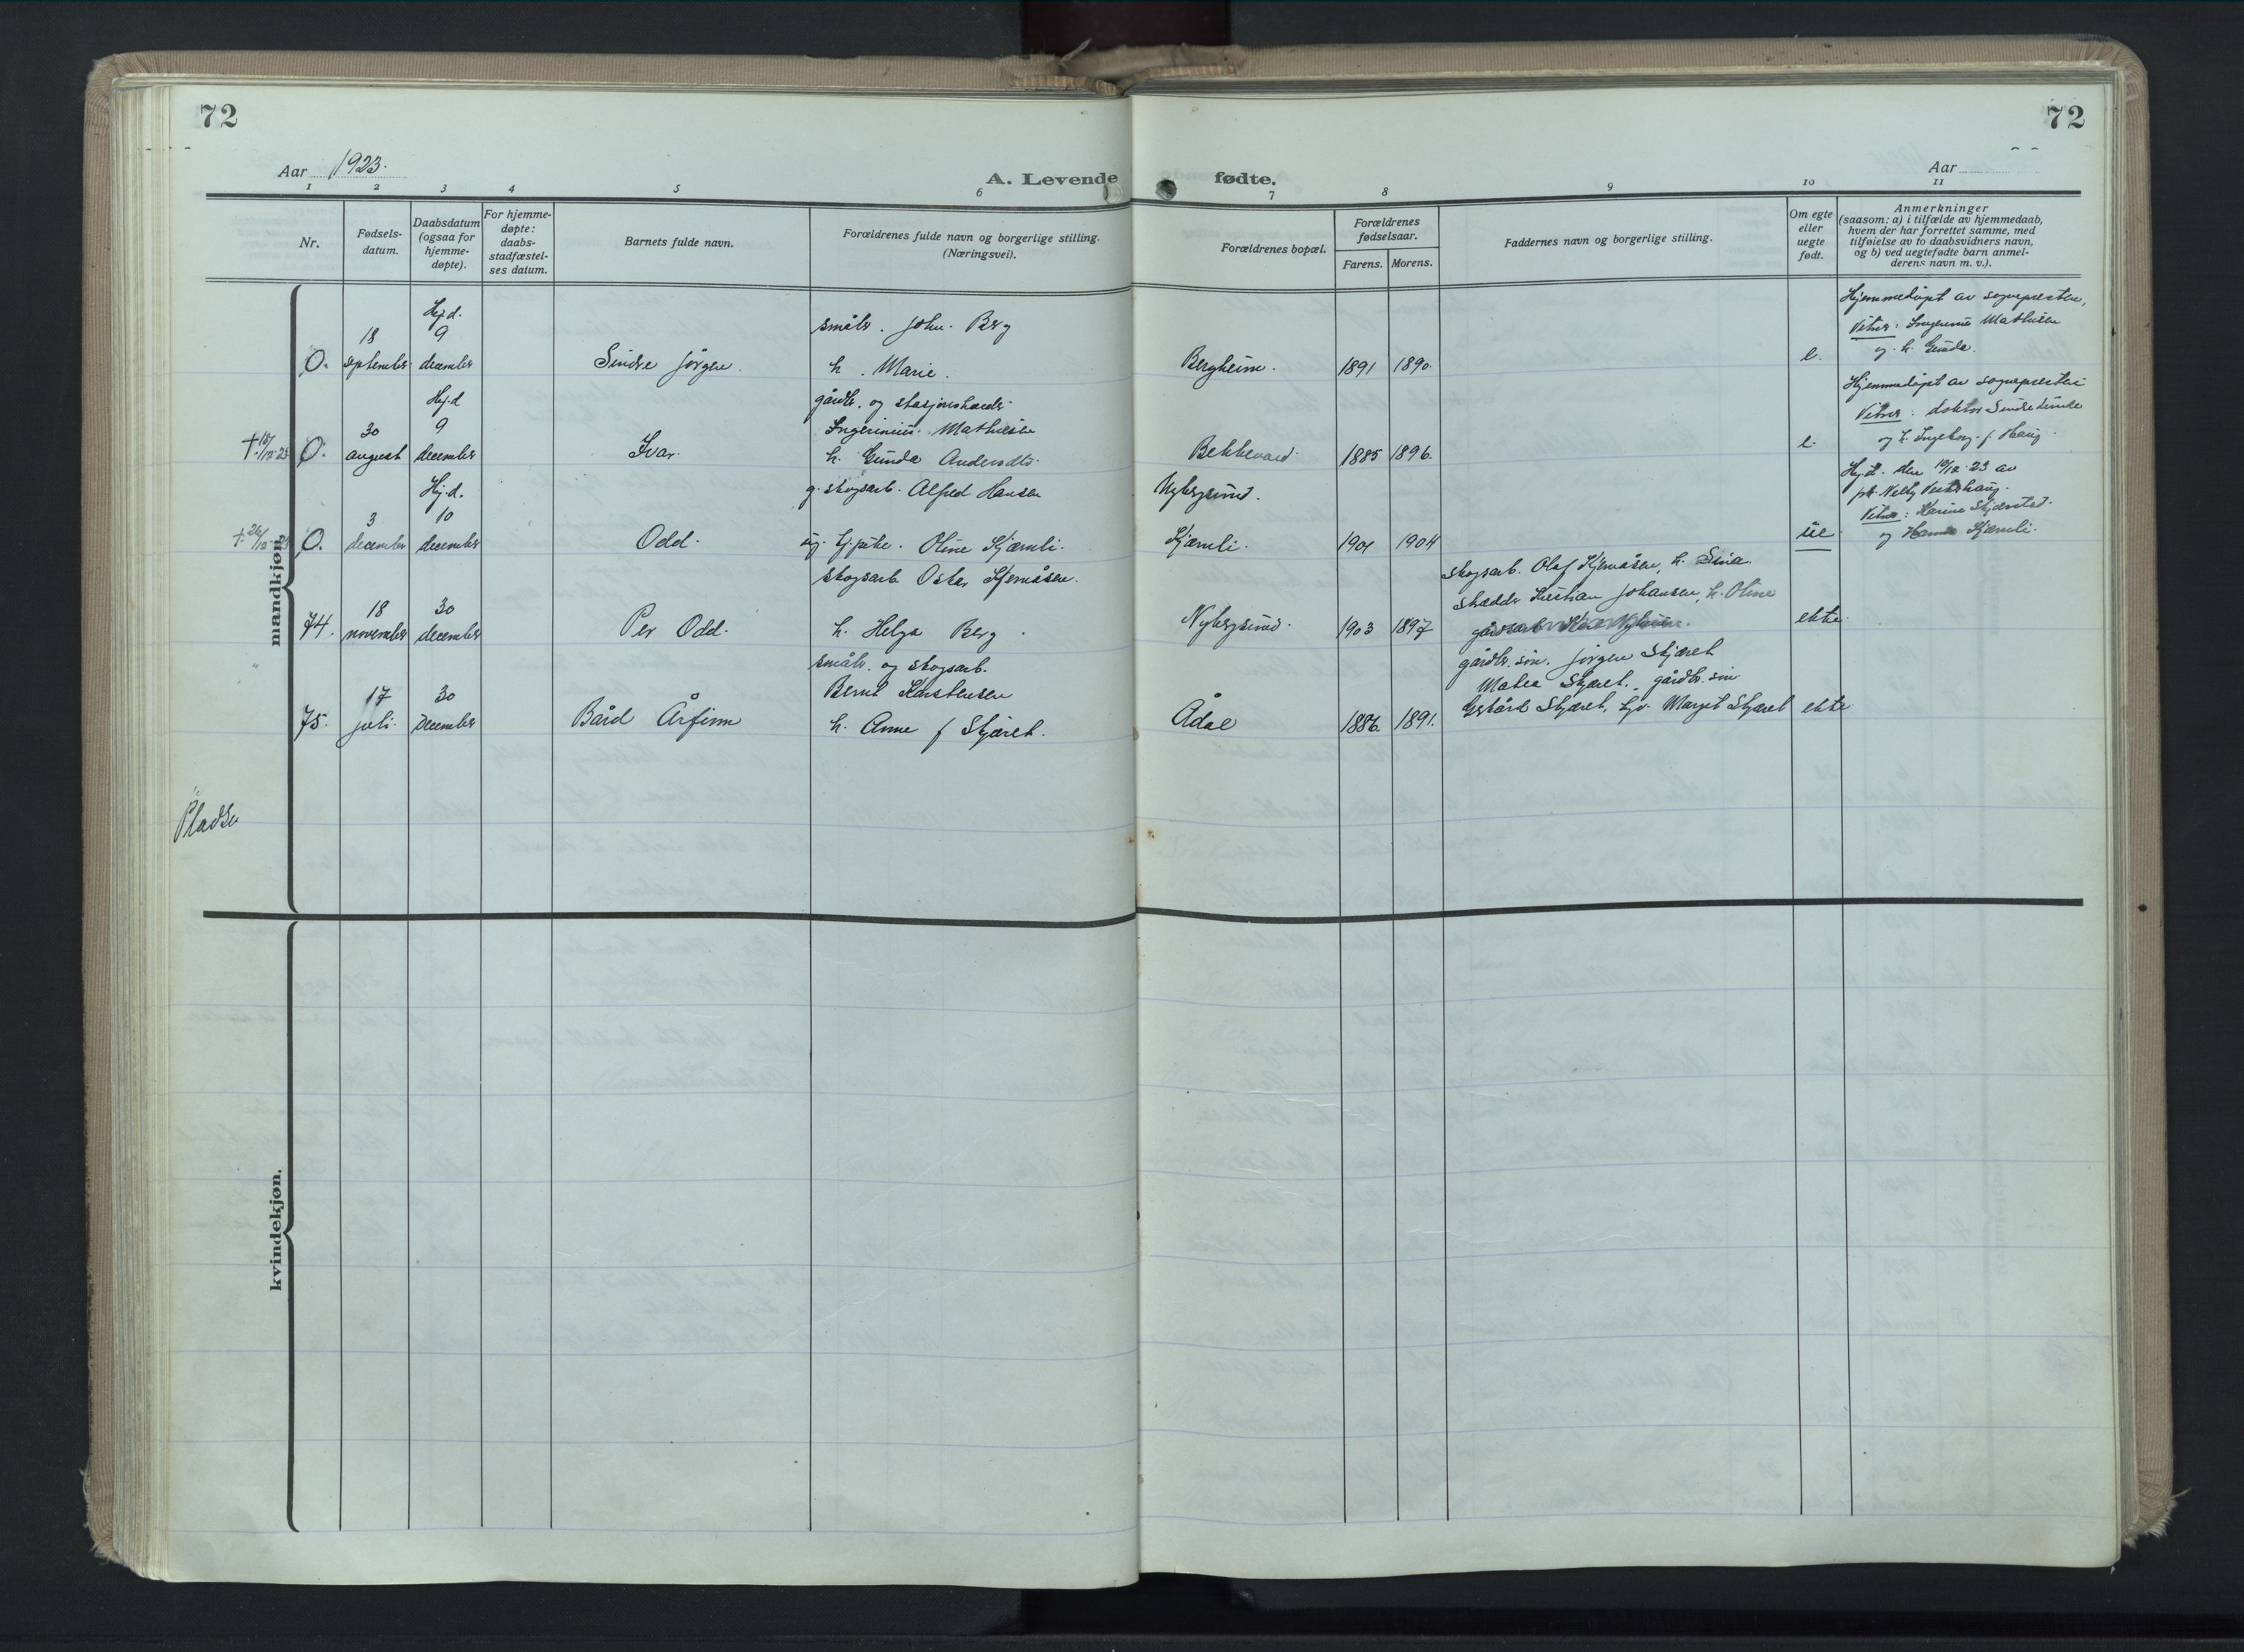 72
72
Aar 1923.
A. Levende fødte.
Aar
1 2 3 4 5 6 7 8 9 10 11
Nr.
Fødsels-
datum.
Daabsdatum
(ogsaa for
hjemme-
døpte).
For hjemme-
døpte:
daabs-
stadfæstel-
ses datum.
Barnets fulde navn.
Forældrenes fulde navn og borgerlige stilling.
(Næringsvei).
Forældrenes bopæl.
Forældrenes
fødselsaar.
Farens. Morens.
Faddernes navn og borgerlige stilling.
Om egte
eller
uegte
født.
Anmerkninger
(saasom: a) i tilfælde av hjemmedaab,
hvem der har forrettet samme, med
tilføielse av to daabsvidners navn,
og b) ved uegtefødte barn anmel-
derens navn m. v.).
mandkjøn.
Hj.d.
O. 18 september 9 december Sindre Jörgen.
småbr. John. Berg
h. Marie.
Bergheim. 1891 1890. e.
Hjemmedöpt av sognepresten,
Vitner: Ingerinius Mathisen
og h. Gunda.
Hj.d
O. 30 august 9 december Ivar.
gårdbr. og stasjonsholder
Ingerinius Mathisen
h. Gunda Andersdtr.
Bekkevold. 1885 1896. e.
Hjemmedöpt av sognepresten
Vitner: doktor Sindre
og h. Ingeborg f. Haug.
Hj.d.
O. 3 december 10 december Odd.
g. skogsarb. Alfred Hansen
ug. tj.pike. Oline Kjærnli.
Nybergsund.
Kjærnli. 1901 1904 ue
Hj.d. den 10/12 23 av
Vitner:
og Kjærnli.
74. 18 november 30 december Per Odd.
skogsarb. Oskar Kjernåsen.
h. Helga Berg.
Nybergsund. 1903 1897
skogsarb. Olaf Kjernåsen, h. Lina.
Kristian Johansen, h. Oline
ekte.
75. 17 juli. 30 december Bård Årfinn
småbr. og skogsarb.
Bernt Karstensen
h. Anne f Skjæret.
Ådal 1886. 1891.
gårdbr. sön. Jörgen Skjæret
Matea Skjæret., gårdbr. sön
Skjæret, Margit Skjæret ekte
Pladsen
kvindekjøn.